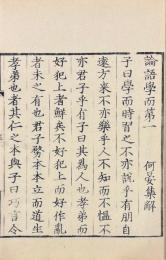 論語學而第一　　何晏集解
子曰學而時習之不亦說乎有朋自
遠方來不亦樂乎人不知而不慍不
亦君子乎有子曰其爲人也孝弟而
好犯上者鮮矣不好犯上而好作亂
者未之有也君子務本本立而道生
孝弟也者其仁之本與子曰巧言令